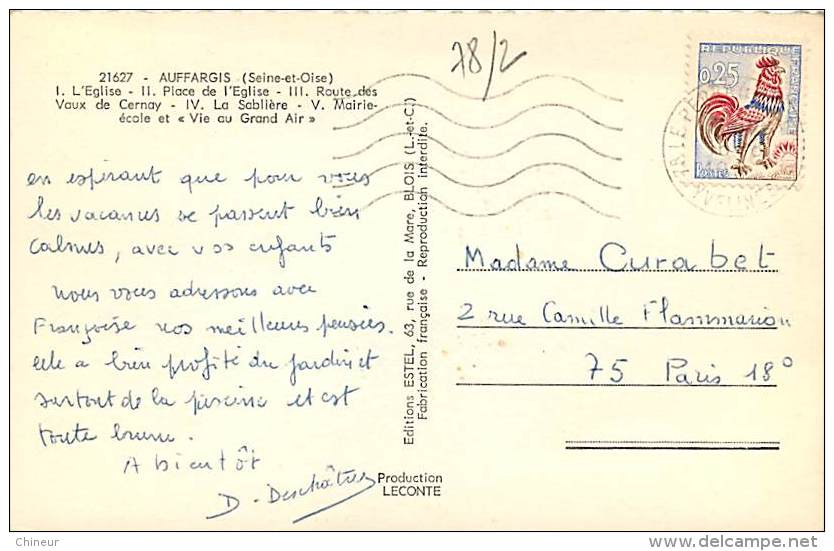 78/2
21627 - AUFFARGIS (Seine-et-Oise)
I. L'Eglise - II. Place de l'Eglise - III. Route des
Vaux de Cernay - IV. La Sablière - V. Mairie-
école et « Vie au Grand Air »
en espérant que pour vous
les vacances se passent bien
calmes, avec vos enfants
nous vous adressons avec
Françoise nos meilleures pensées.
elle a bien profité du jardin et
surtout de la piscine et est
toute brune.
A bientôt
D. Deschâtres
Editions ESTEL, 63, rue de la Mare, BLOIS (L.-et-C.)
Fabrication française - Reproduction interdite.
Production
LECONTE
REPUBLIQUE FRANÇAISE
0,25
POSTES
78 LE
YVELINES
Madame Curabet
2 rue Camille Flammarion
75 Paris 18°
Chineur
www.delcampe.net